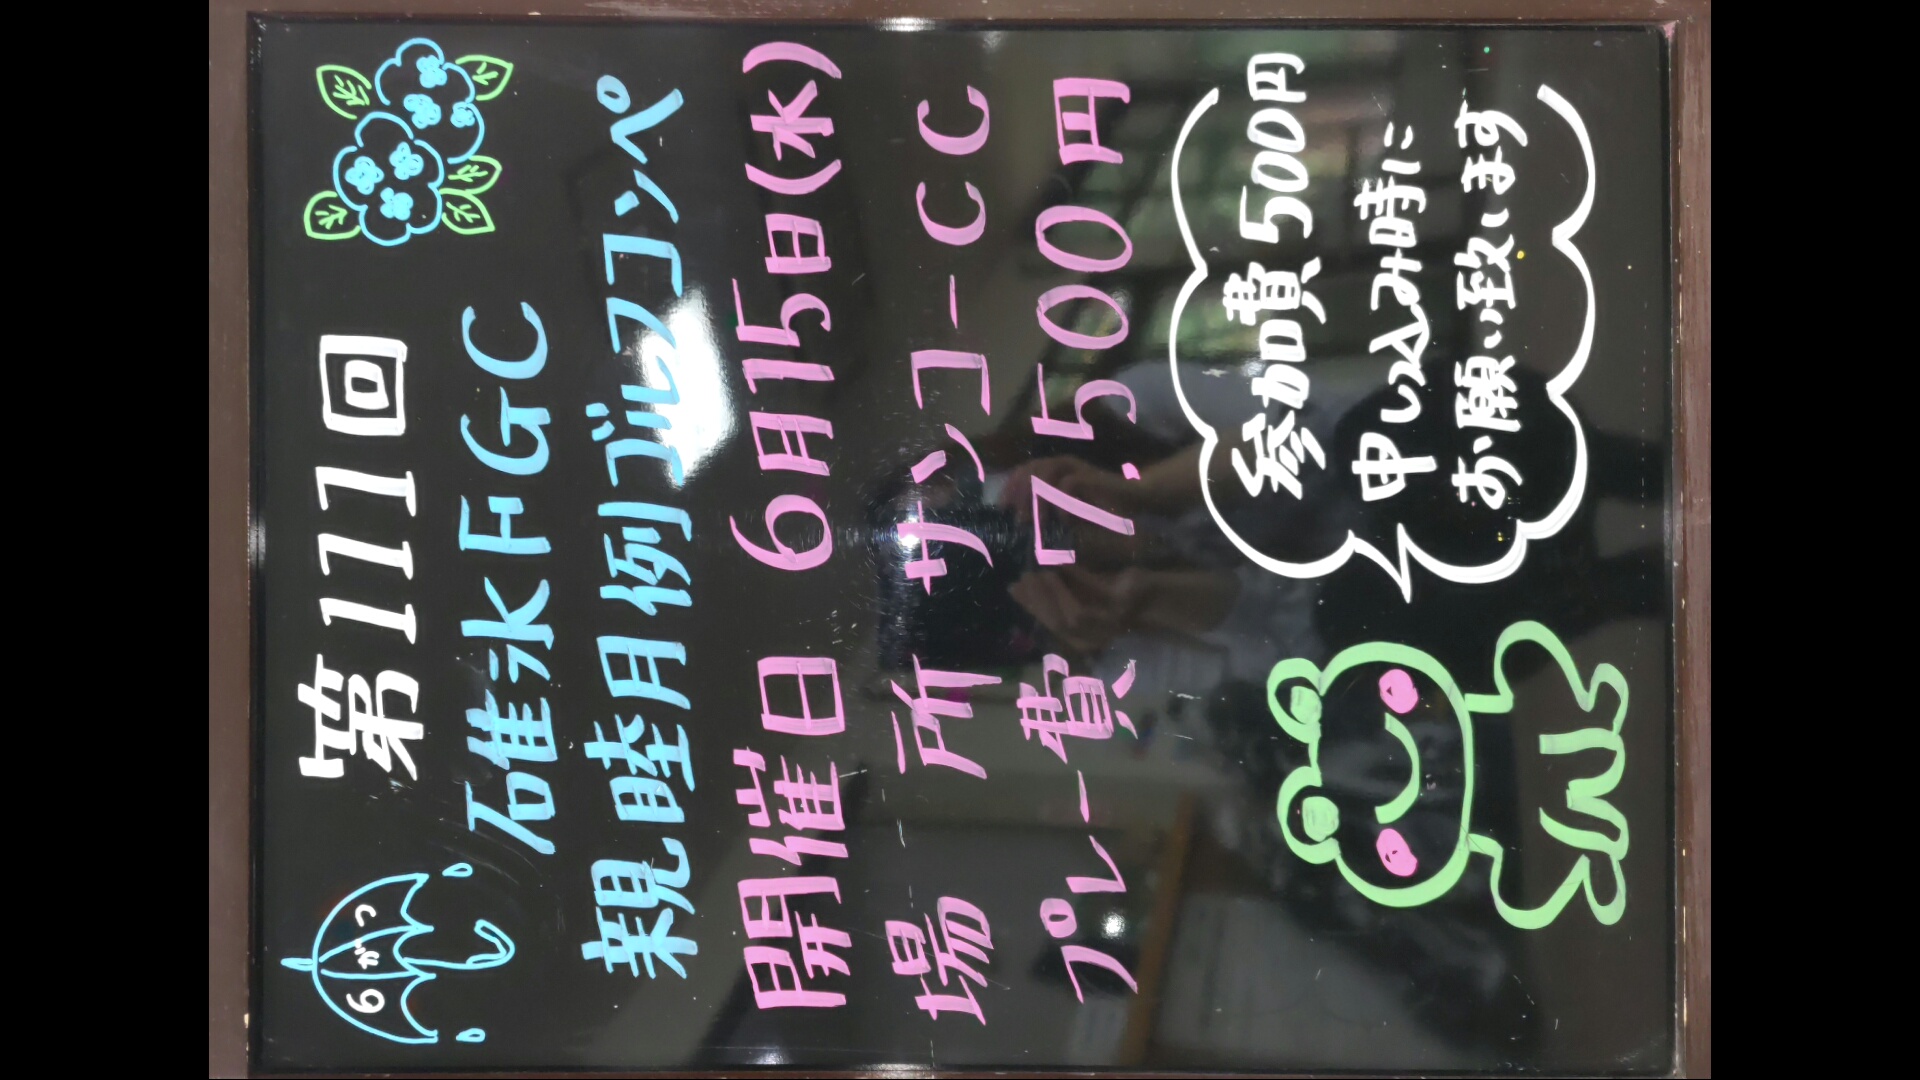 6がつ
第111回
碓氷FGC
親睦月例ゴルフコンペ
開催日 6月15日(水)
場所 サンコーCC
プレー費 7.500円
参加費500円
申し込み時に
お願い致します